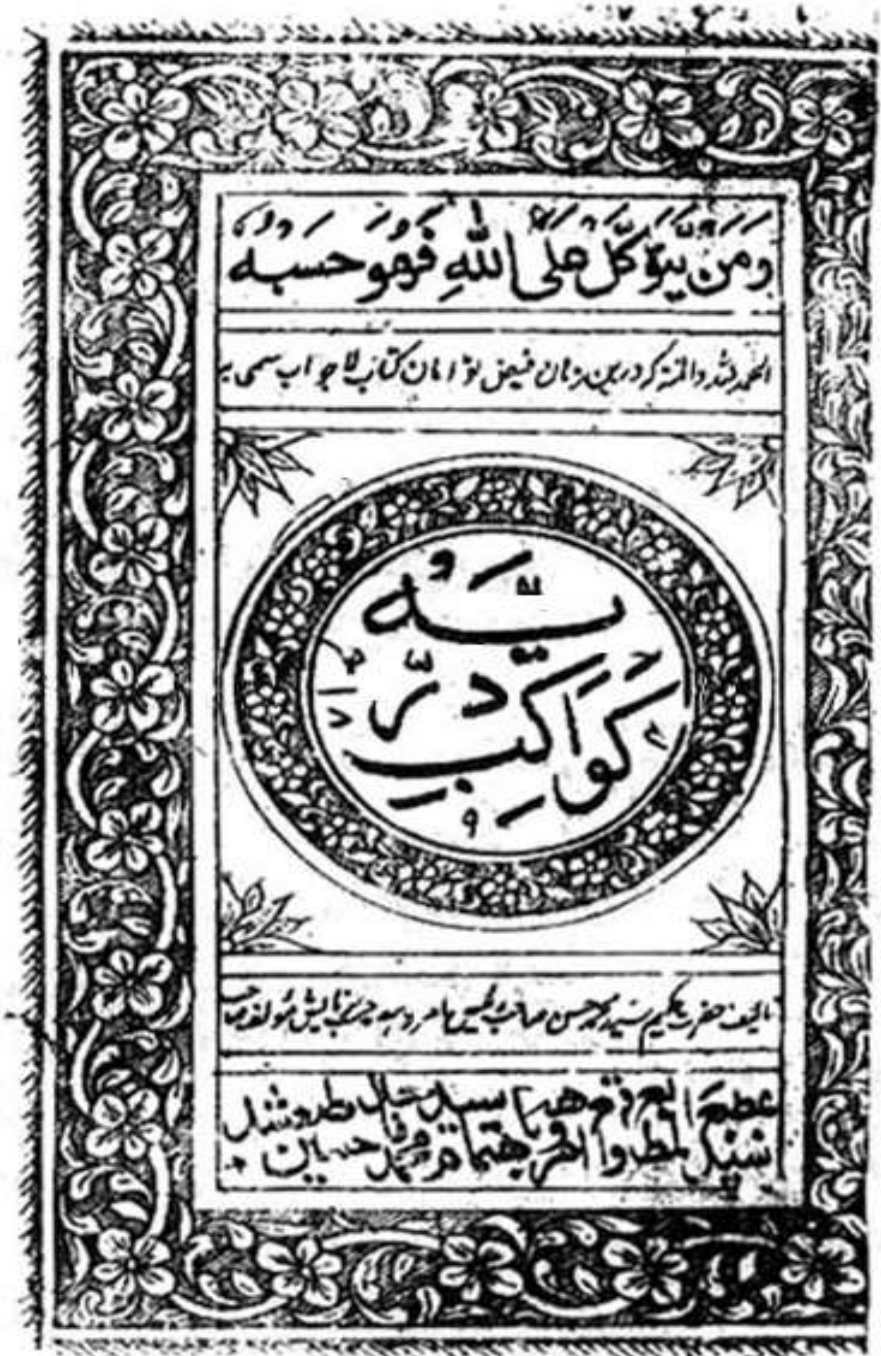 وَمَنْ يَّتَوَكَّلْ عَلَى اللّٰهِ فَهُوَ حَسْبُهٗ
الحمد للہ والمنۃ کہ درین زمان فیض تو امان کتاب لا جواب سمی بہ
کَوَاکِبِ
دُرِّ
یَّہ
تالیف حضرت حکیم سید محمد حسن صاحب رئیس امروہہ حسب فرمایش مؤلف صاحب
مطبع
سید المطابع امروہہ
باہتمام
محمد حسین